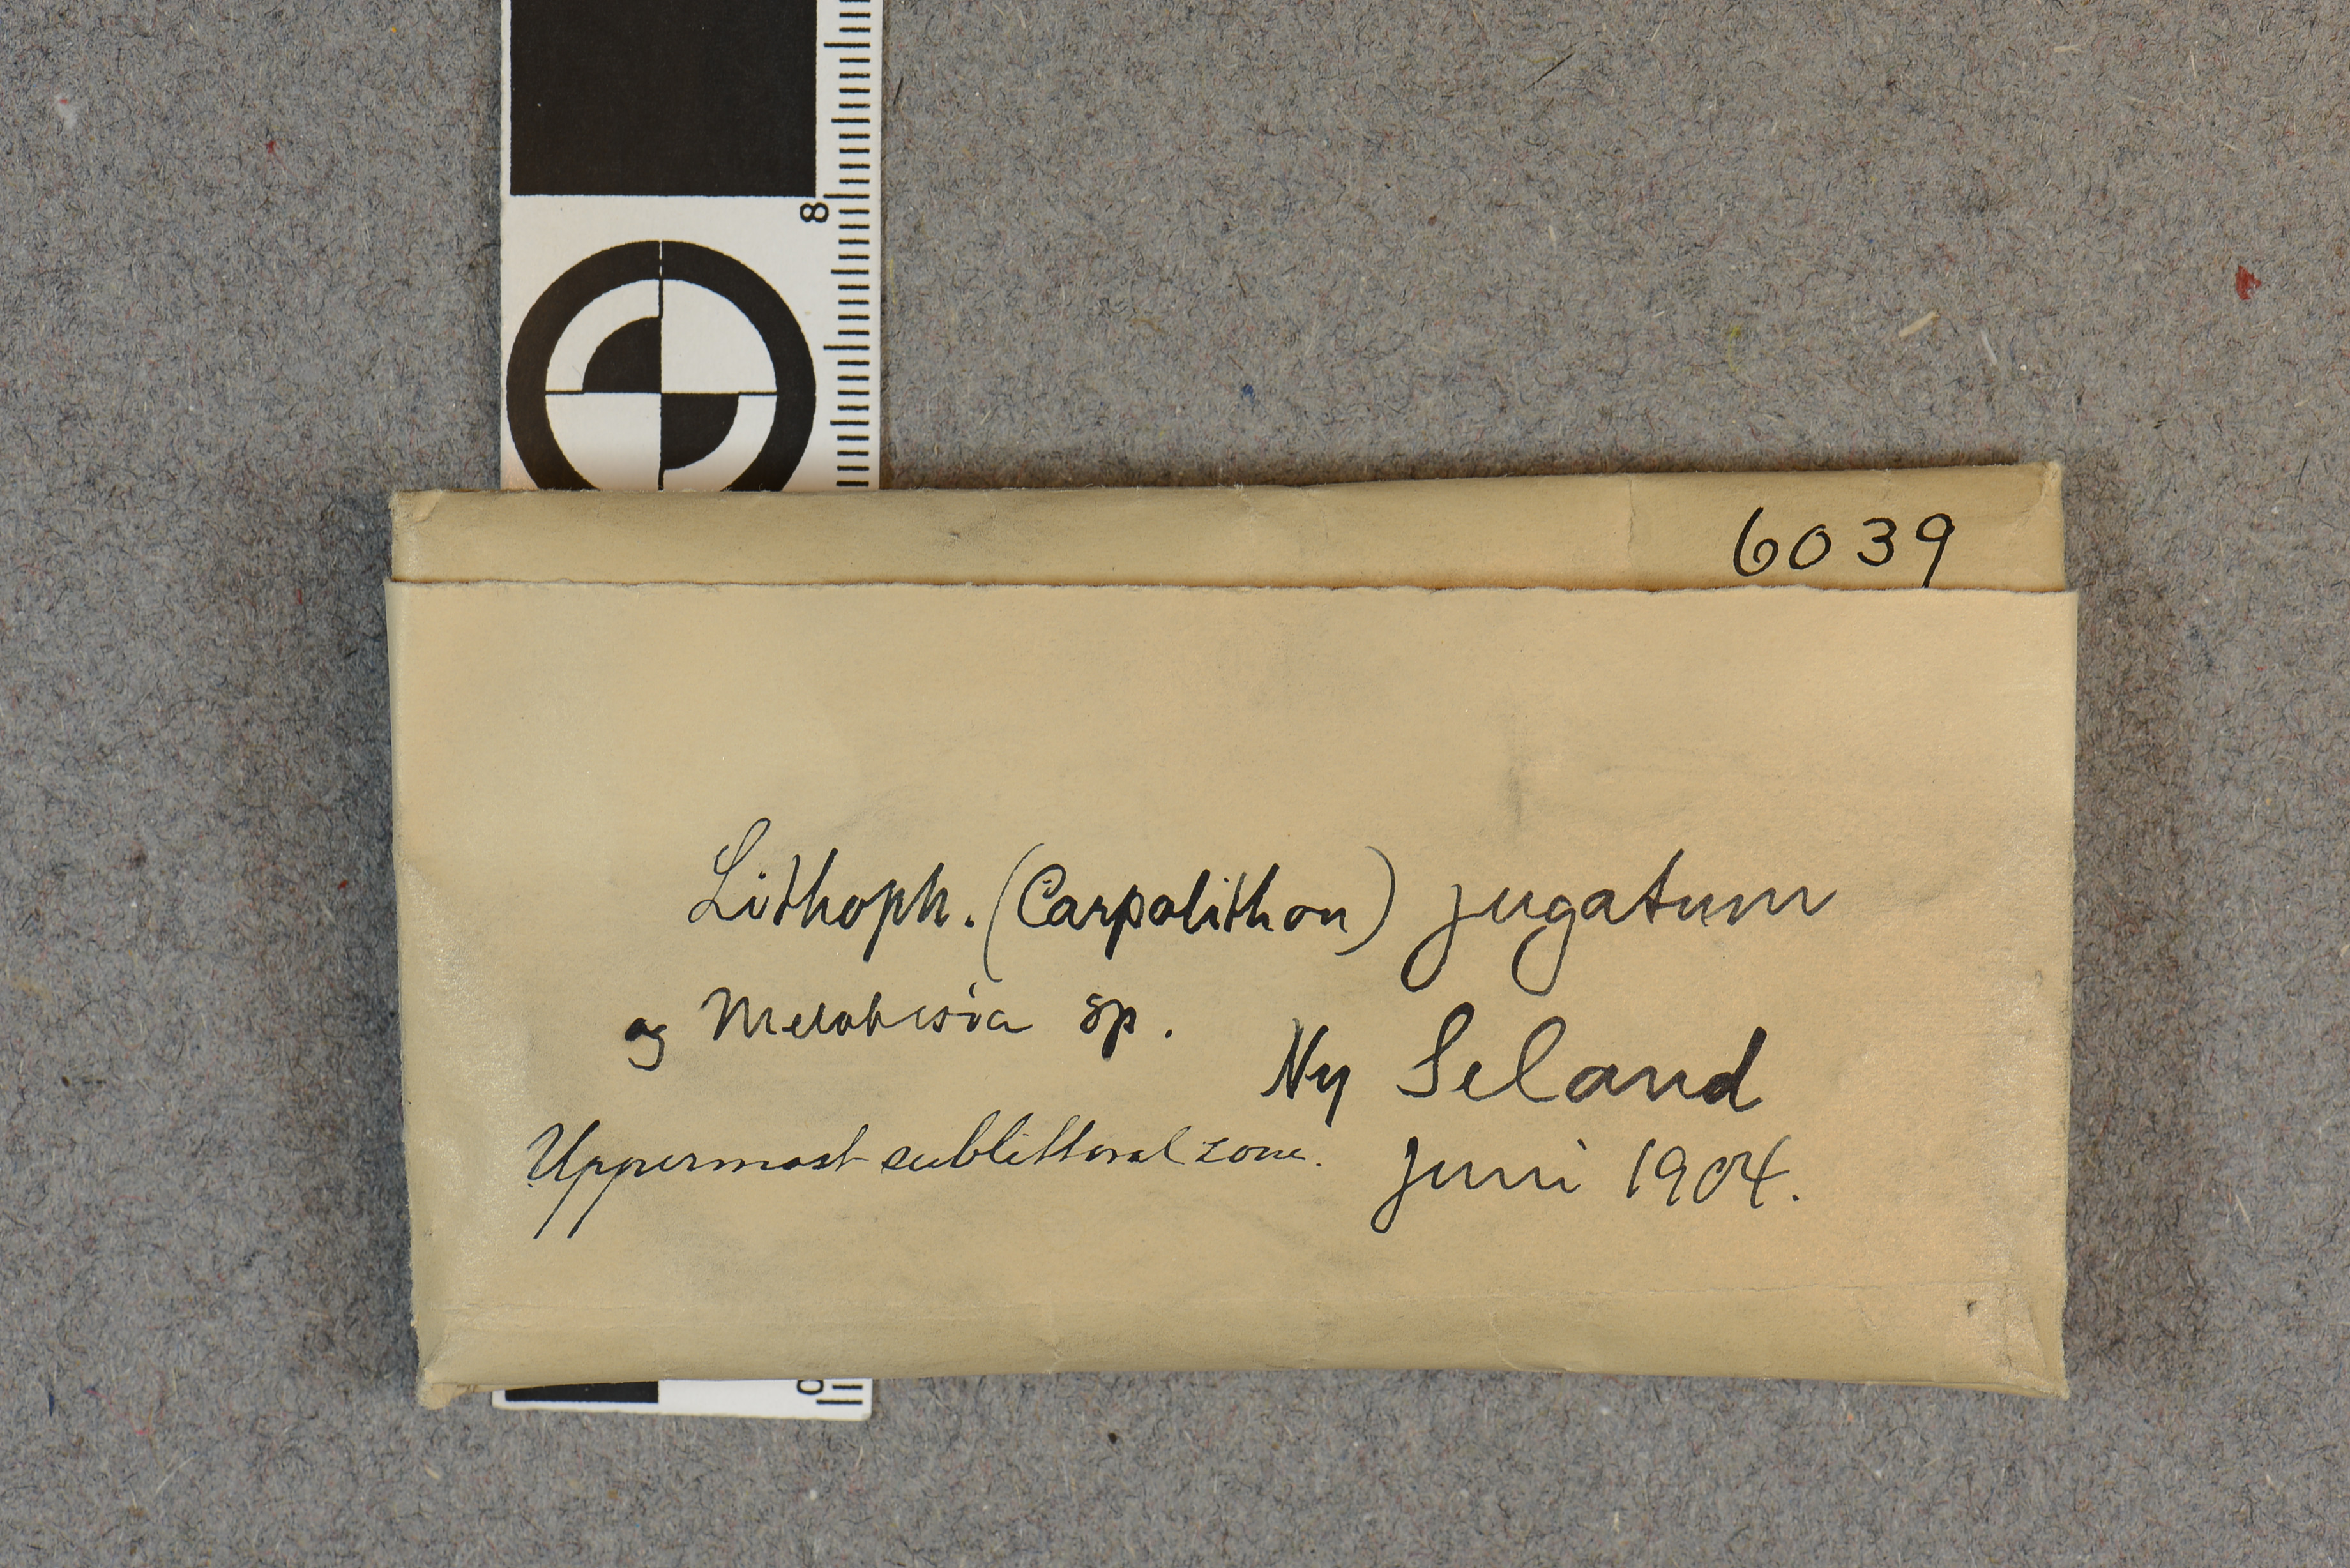 8
6039
Lithoph. (Carpolithon) jugatum
og Melobesia sp.
Ny Seland
Uppermost sublittoral zone.
Juni 1904.